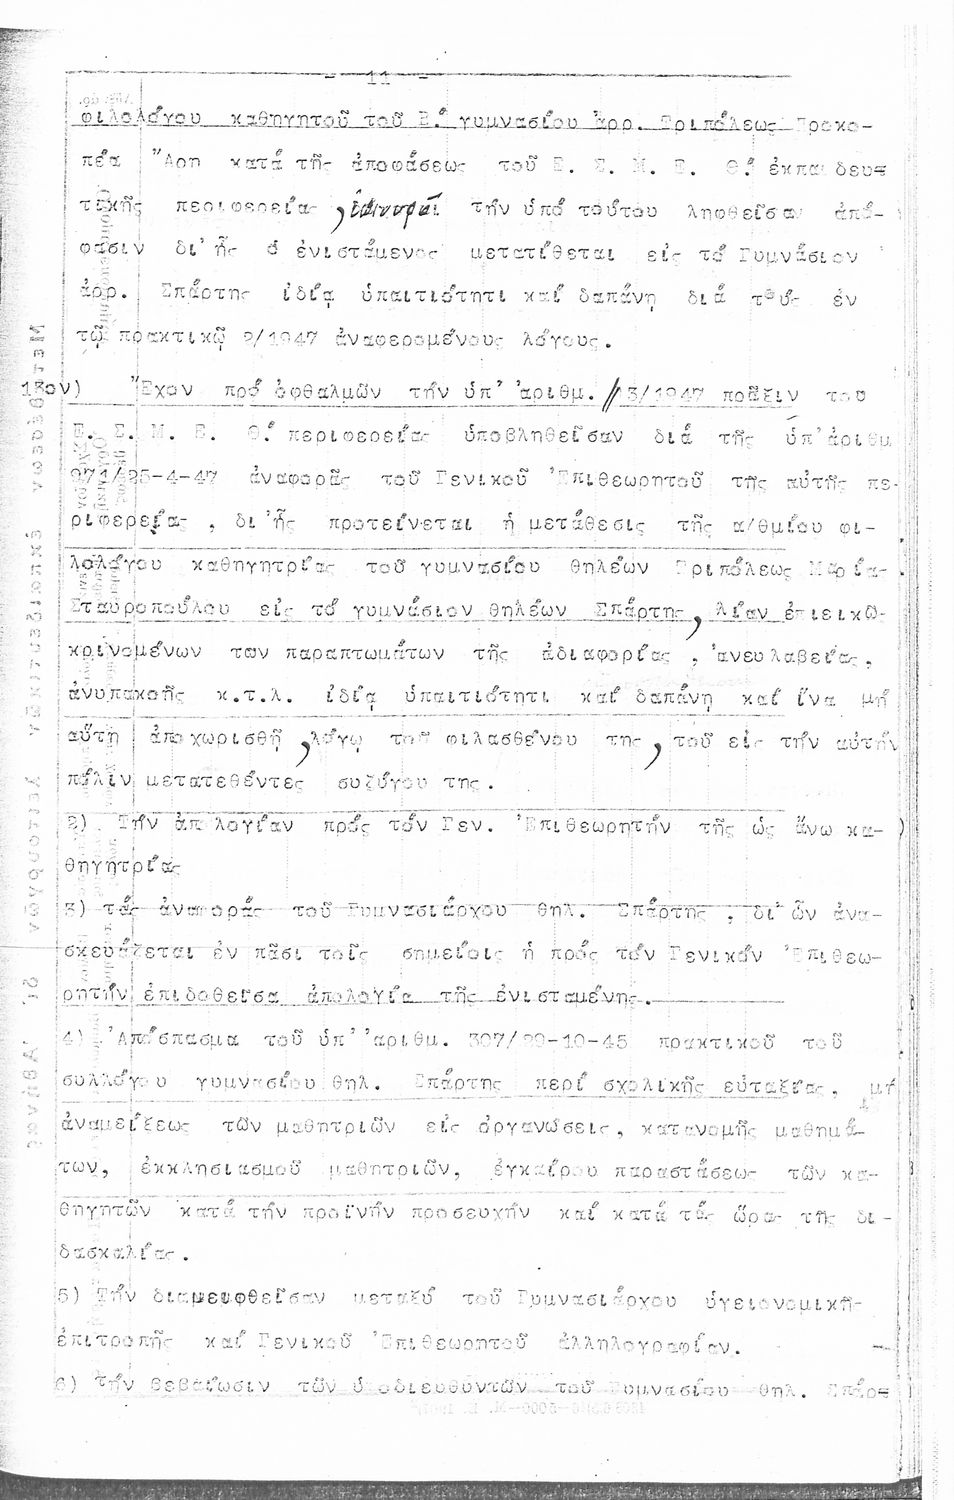 - 11 -
φιλολόγου καθηγητοῦ τοῦ Ε.΄ γυμνασίου ἀρρ. Τριπόλεως Προκο-
πέα Ἄρη κατά τῆς ἀποφάσεως τοῦ Ε. Σ. Μ. Ε. Θ.΄ ἐκπαιδευ=
τικῆς περιφερείας, τήν ὑπό τούτου ληφθεῖσαν ἀπό-
φασιν δι' ἧς ὁ ἐνιστάμενος μετατίθεται εἰς τό Γυμνάσιον
ἀρρ. Σπάρτης ἰδίᾳ ὑπαιτιότητι καί δαπάνῃ διά τούς ἐν
τῷ πρακτικῷ 2/1947 ἀναφερομένους λόγους.
13ον) Ἔχον πρό ὀφθαλμῶν τήν ὑπ' ἀριθμ. 13/1947 πρᾶξιν του
Ε. Σ. Μ. Ε. Θ.΄ περιφερείας ὑποβληθεῖσαν διά τῆς ὑπ'ἀριθμ
974/25-4-47 ἀναφορᾶς τοῦ Γενικοῦ Ἐπιθεωρητοῦ τῆς αὐτῆς πε-
ριφερείας, δι'ἧς προτείνεται ἡ μετάθεσις τῆς α/θμίου φι-
λολόγου καθηγητρίας τοῦ γυμνασίου θηλέων Τριπόλεως Μαρίας
Σταυροπούλου εἰς τό γυμνάσιον θηλέων Σπάρτης, λίαν ἐπιεικῶς
κρινομένων των παραπτωμάτων τῆς ἀδιαφορίας, ἀνευλαβείας,
ἀνυπακοῆς κ.τ.λ. ἰδίᾳ ὑπαιτιότητι καί δαπάνῃ καί ἵνα μή
αὕτη ἀποχωρισθῇ, λόγῳ τοῦ φιλασθένου της, τοῦ εἰς τήν αὐτήν
πόλιν μετατεθέντες συζύγου της.
2) Τήν ἀπολογίαν πρός τόν Γεν. Ἐπιθεωρητήν τῆς ὡς ἄνω κα-
θηγητρίας
3) τάς ἀναφοράς τοῦ Γυμνασιάρχου θηλ. Σπάρτης, δι' ὧν ἀνα-
σκευάζεται ἐν πᾶσι τοῖς σημείοις ἡ πρός τόν Γενικόν Ἐπιθεω-
ρητήν ἐπιδοθεῖσα ἀπολογία τῆς ἐνισταμένης.
4) Ἀπόσπασμα τοῦ ὑπ' ἀριθμ. 307/29-10-45 πρακτικοῦ τοῦ
συλλόγου γυμνασίου θηλ. Σπάρτης περί σχολικῆς εὐταξίας, μή
ἀναμείξεως τῶν μαθητριῶν εἰς ὀργανώσεις, κατανομῆς μαθημά-
των, ἐκκλησιασμοῦ μαθητριῶν, ἐγκαίρου παραστάσεως τῶν κα-
θηγητῶν κατά τήν προϊνήν προσευχήν καί κατά τάς ὥρας τῆς δι-
δασκαλίας.
5) Τήν διαμειφθεῖσαν μεταξύ τοῦ Γυμνασιάρχου ὑγειονομικῆς
ἐπιτροπῆς καί Γενικοῦ Ἐπιθεωρητοῦ ἀλληλογραφίαν.
6) τήν βεβαίωσιν τῶν ὑποδιευθυντῶν τοῦ Γυμνασίου θηλ. Σπάρ=